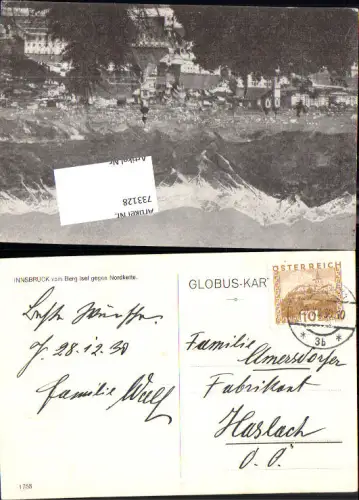 Artikel Nr.
733128
Artikel Nr.
INNSBRUCK vom Berg Isel gegen Nordkette.
GLOBUS-KAR
ÖSTERREICH
10
30
* 3b *
Beste Wünsche.
28.12.30
Familie Wulf
Familie
Amersdorfer
Fabrikant
Haslach
O. Ö.